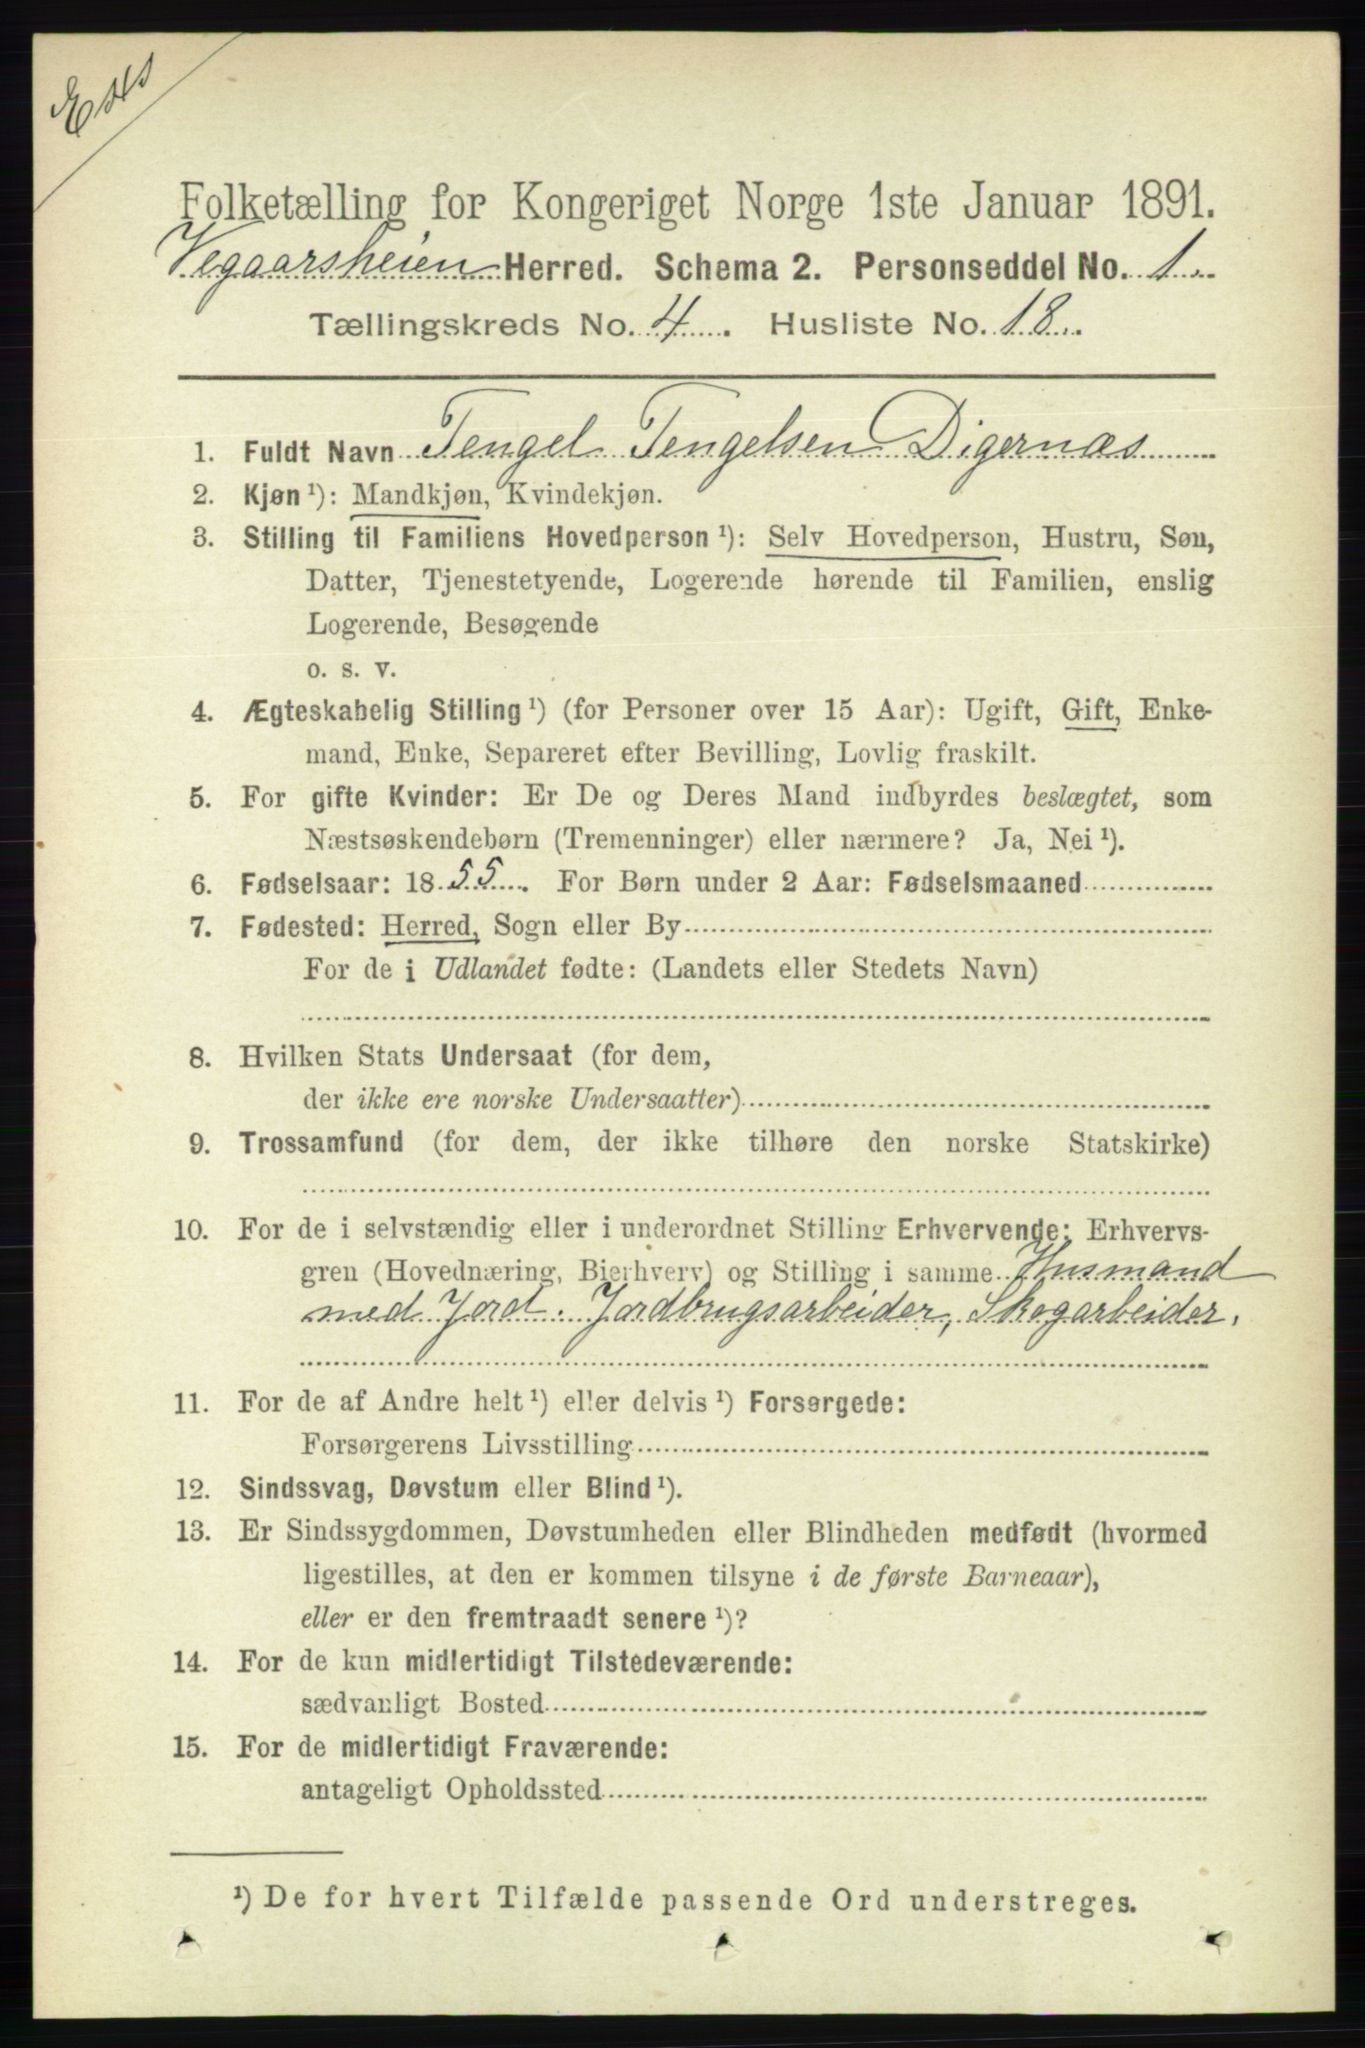 Folketælling for Kongeriget Norge 1ste Januar 1891.
Vegaarsheien Herred. Schema 2. Personseddel No. 1
Tællingskreds No. 4. Husliste No. 18.
1. Fuldt Navn Tengel Tengelsen Digernæs
2. Kjøn ¹): Mandkjøn, Kvindekjøn.
3. Stilling til Familiens Hovedperson ¹): Selv Hovedperson, Hustru, Søn,
Datter, Tjenestetyende, Logerende hørende til Familien, enslig
Logerende, Besøgende
o. s. v.
4. Ægteskabelig Stilling ¹) (for Personer over 15 Aar): Ugift, Gift, Enke-
mand, Enke, Separeret efter Bevilling, Lovlig fraskilt.
5. For gifte Kvinder: Er De og Deres Mand indbyrdes beslægtet, som
Næstsøskendebørn (Tremenninger) eller nærmere? Ja, Nei ¹).
6. Fødselsaar: 1855. For Børn under 2 Aar: Fødselsmaaned
7. Fødested: Herred, Sogn eller By
For de i Udlandet fødte: (Landets eller Stedets Navn)
8. Hvilken Stats Undersaat (for dem,
der ikke ere norske Undersaatter)
9. Trossamfund (for dem, der ikke tilhøre den norske Statskirke)
10. For de i selvstændig eller i underordnet Stilling Erhvervende: Erhvervs-
gren (Hovednæring, Bierhverv) og Stilling i samme Husmand
med Jord. Jordbrugsarbeider, Skogarbeider.
11. For de af Andre helt ¹) eller delvis ¹) Forsørgede:
Forsørgerens Livsstilling
12. Sindssvag, Døvstum eller Blind ¹).
13. Er Sindssygdommen, Døvstumheden eller Blindheden medfødt (hvormed
ligestilles, at den er kommen tilsyne i de første Barneaar),
eller er den fremtraadt senere ¹)?
14. For de kun midlertidigt Tilstedeværende:
sædvanligt Bosted
15. For de midlertidigt Fraværende:
antageligt Opholdssted
¹) De for hvert Tilfælde passende Ord understreges.